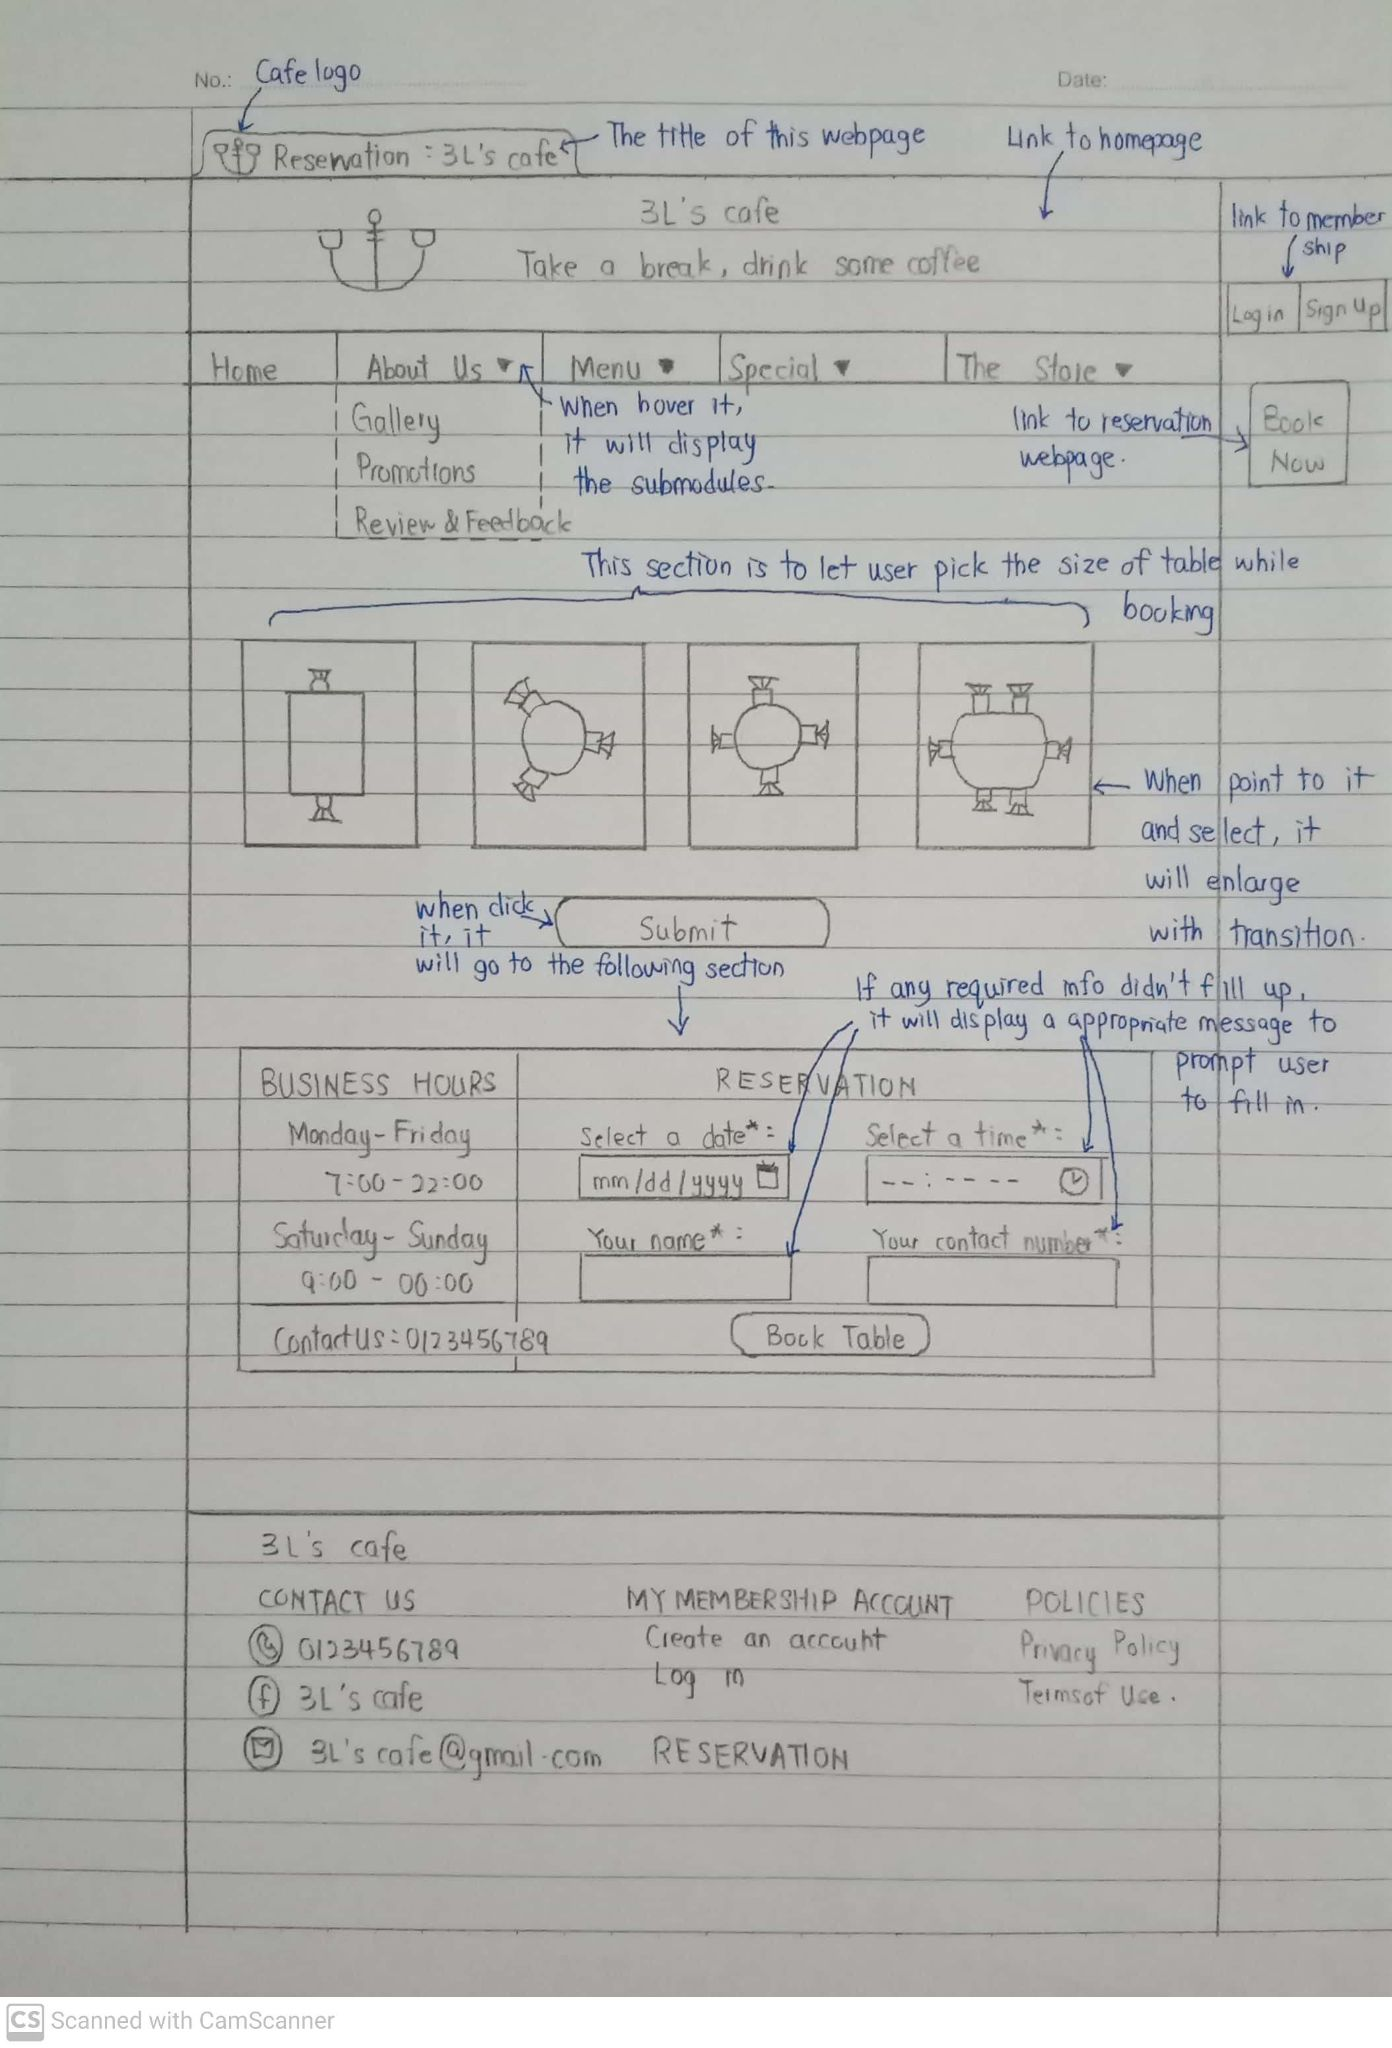 No.:
Cafe logo
Date:
Reservation : 3L's cafe
The title of this webpage
Link to homepage
3L's cafe
Take a break, drink some coffee
link to member
ship
Log in
Sign Up
Home
About Us ▼
Menu ▼
Special ▼
The Store ▼
Gallery
Promotions
Review & Feedback
When hover it,
it will display
the submodules.
link to reservation
webpage.
Book
Now
This section is to let user pick the size of table while
booking
When point to it
and select, it
will enlarge
with transition.
when click
it, it
will go to the following section
Submit
If any required info didn't fill up,
it will display a appropriate message to
prompt user
to fill in.
BUSINESS HOURS
Monday-Friday
7:00-22:00
Saturday-Sunday
9:00 - 00:00
Contact Us : 0123456789
RESERVATION
Select a date* :
Select a time* :
mm/dd/yyyy
--:----
Your name* :
Your contact number* :
Book Table
3L's cafe
CONTACT US
0123456789
3L's cafe
3L's cafe@gmail.com
MY MEMBERSHIP ACCOUNT
Create an account
Log in
RESERVATION
POLICIES
Privacy Policy
Terms of Use.
CS Scanned with CamScanner